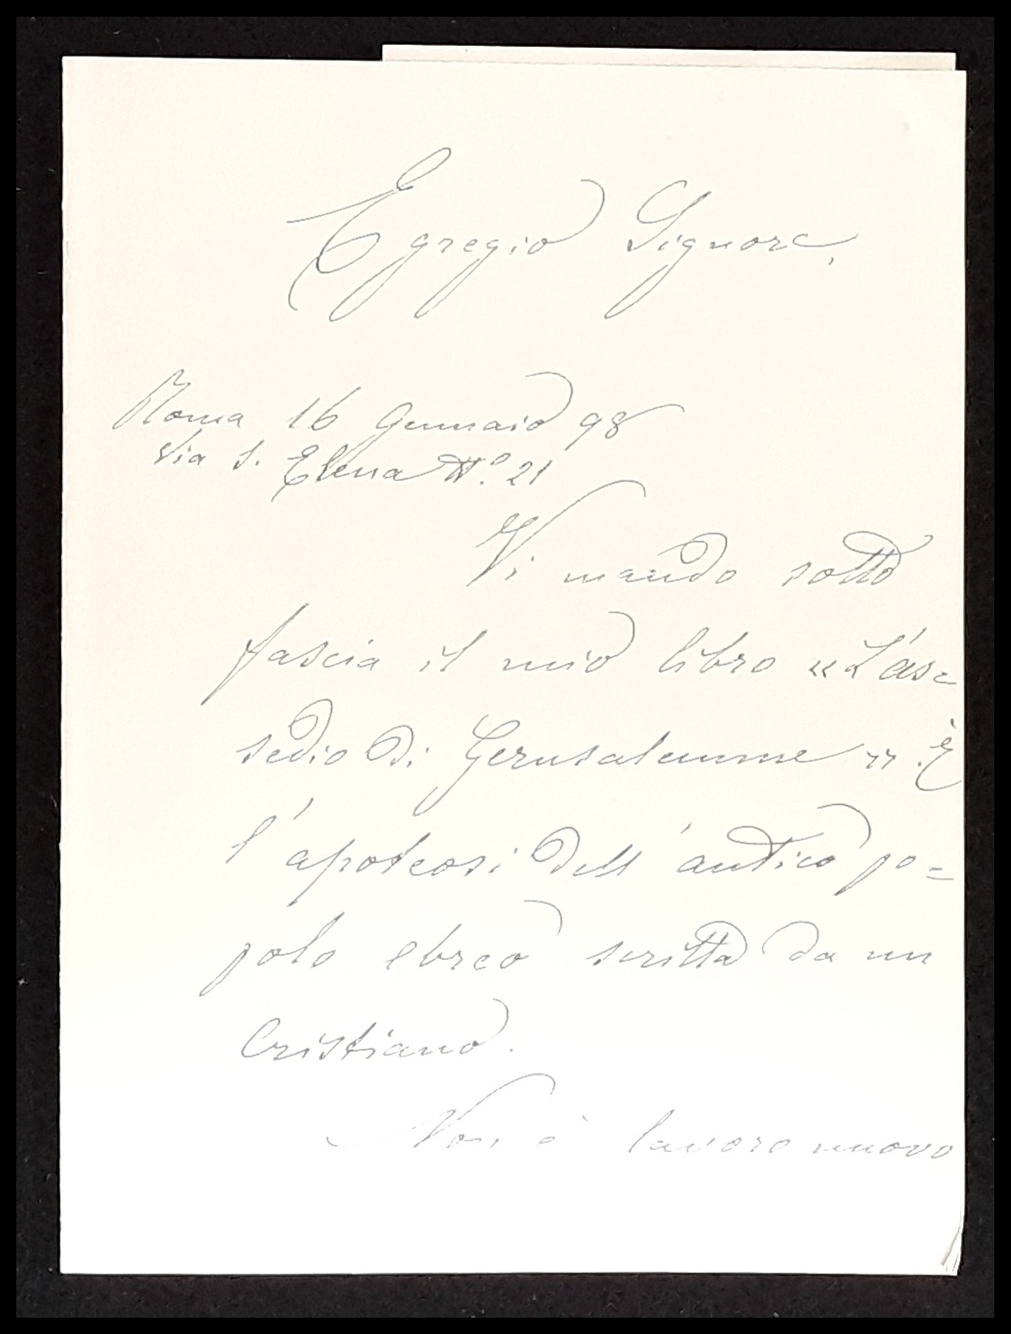 Egregio Signore,
Roma 16 Gennaio 98
Via S. Elena N.º 21
Vi mando sotto
fascia il mio libro « L'as=
sedio di Gerusalemme ». È
l'apoteosi dell'antico po=
polo ebreo scritta da un
Cristiano.
Non è lavoro nuovo